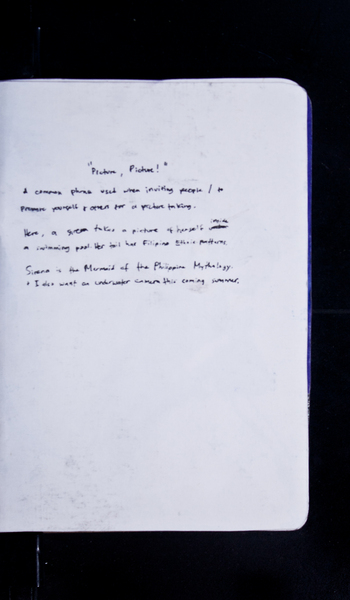 "Picture, Picture!"
A common phrase used when inviting people / to
prepare yourself & others for a picture taking.
Here, a siren takes a picture of herself inside
a swimming pool. Her tail has Filipino Ethnic patterns.
Sirena is the Mermaid of the Philippine Mythology.
I also want an underwater camera this coming summer.